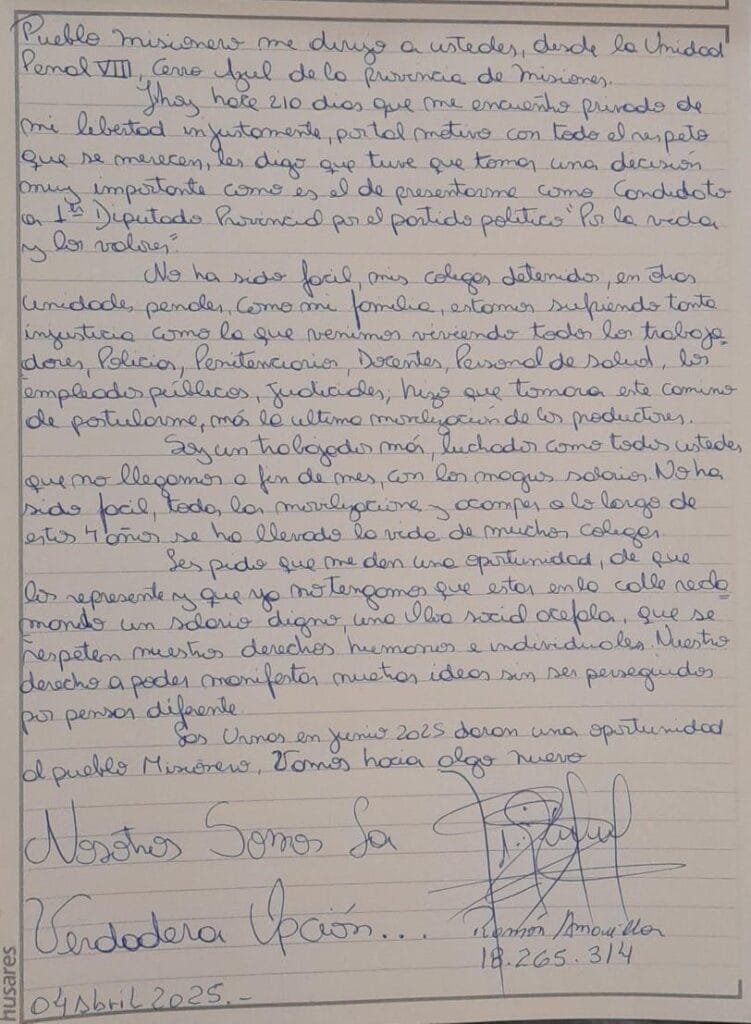 Pueblo misionero me dirijo a ustedes, desde la Unidad
Penal VIII, Cerro Azul de la provincia de Misiones.
Hoy hace 210 dias que me encuentro privado de
mi libertad injustamente, por tal motivo con todo el respeto
que se merecen, les digo que tuve que tomar una decisión
muy importante como es el de presentarme como Candidato
a 1er Diputado Provincial por el partido politico "Por la vida
y los valores"
No ha sido facil, mis colegas detenidos, en otras
unidades penales, como mi familia, estamos sufriendo tanta
injusticia como la que venimos viviendo todos los trabaja-
dores, Policias, Penitenciarios, Docentes, Personal de salud, los
empleados públicos, judiciales; hizo que tomara este camino
de postularme, más la ultima movilización de los productores.
Soy un trabajador más, luchador como todos ustedes
que no llegamos a fin de mes, con los magros salarios. No ha
sido facil, todas las movilizaciones y acampes a lo largo de
estos 4 años se ha llevado la vida de muchos colegas
Les pido que me den una oportunidad, de que
los represente y que ya no tengamos que estar en la calle recla-
mando un salario digno, una Obra social acefala, que se
respeten nuestros derechos humanos e individuales. Nuestro
derecho a poder manifestar nuestras ideas sin ser perseguidos
por pensar diferente
Las Urnas en junio 2025 daran una oportunidad
al pueblo Misionero, Vamos hacia algo nuevo
Nosotros Somos La
Verdadera Opción...
Ramón Amarilla
18.265.314
04 Abril 2025.-
husares